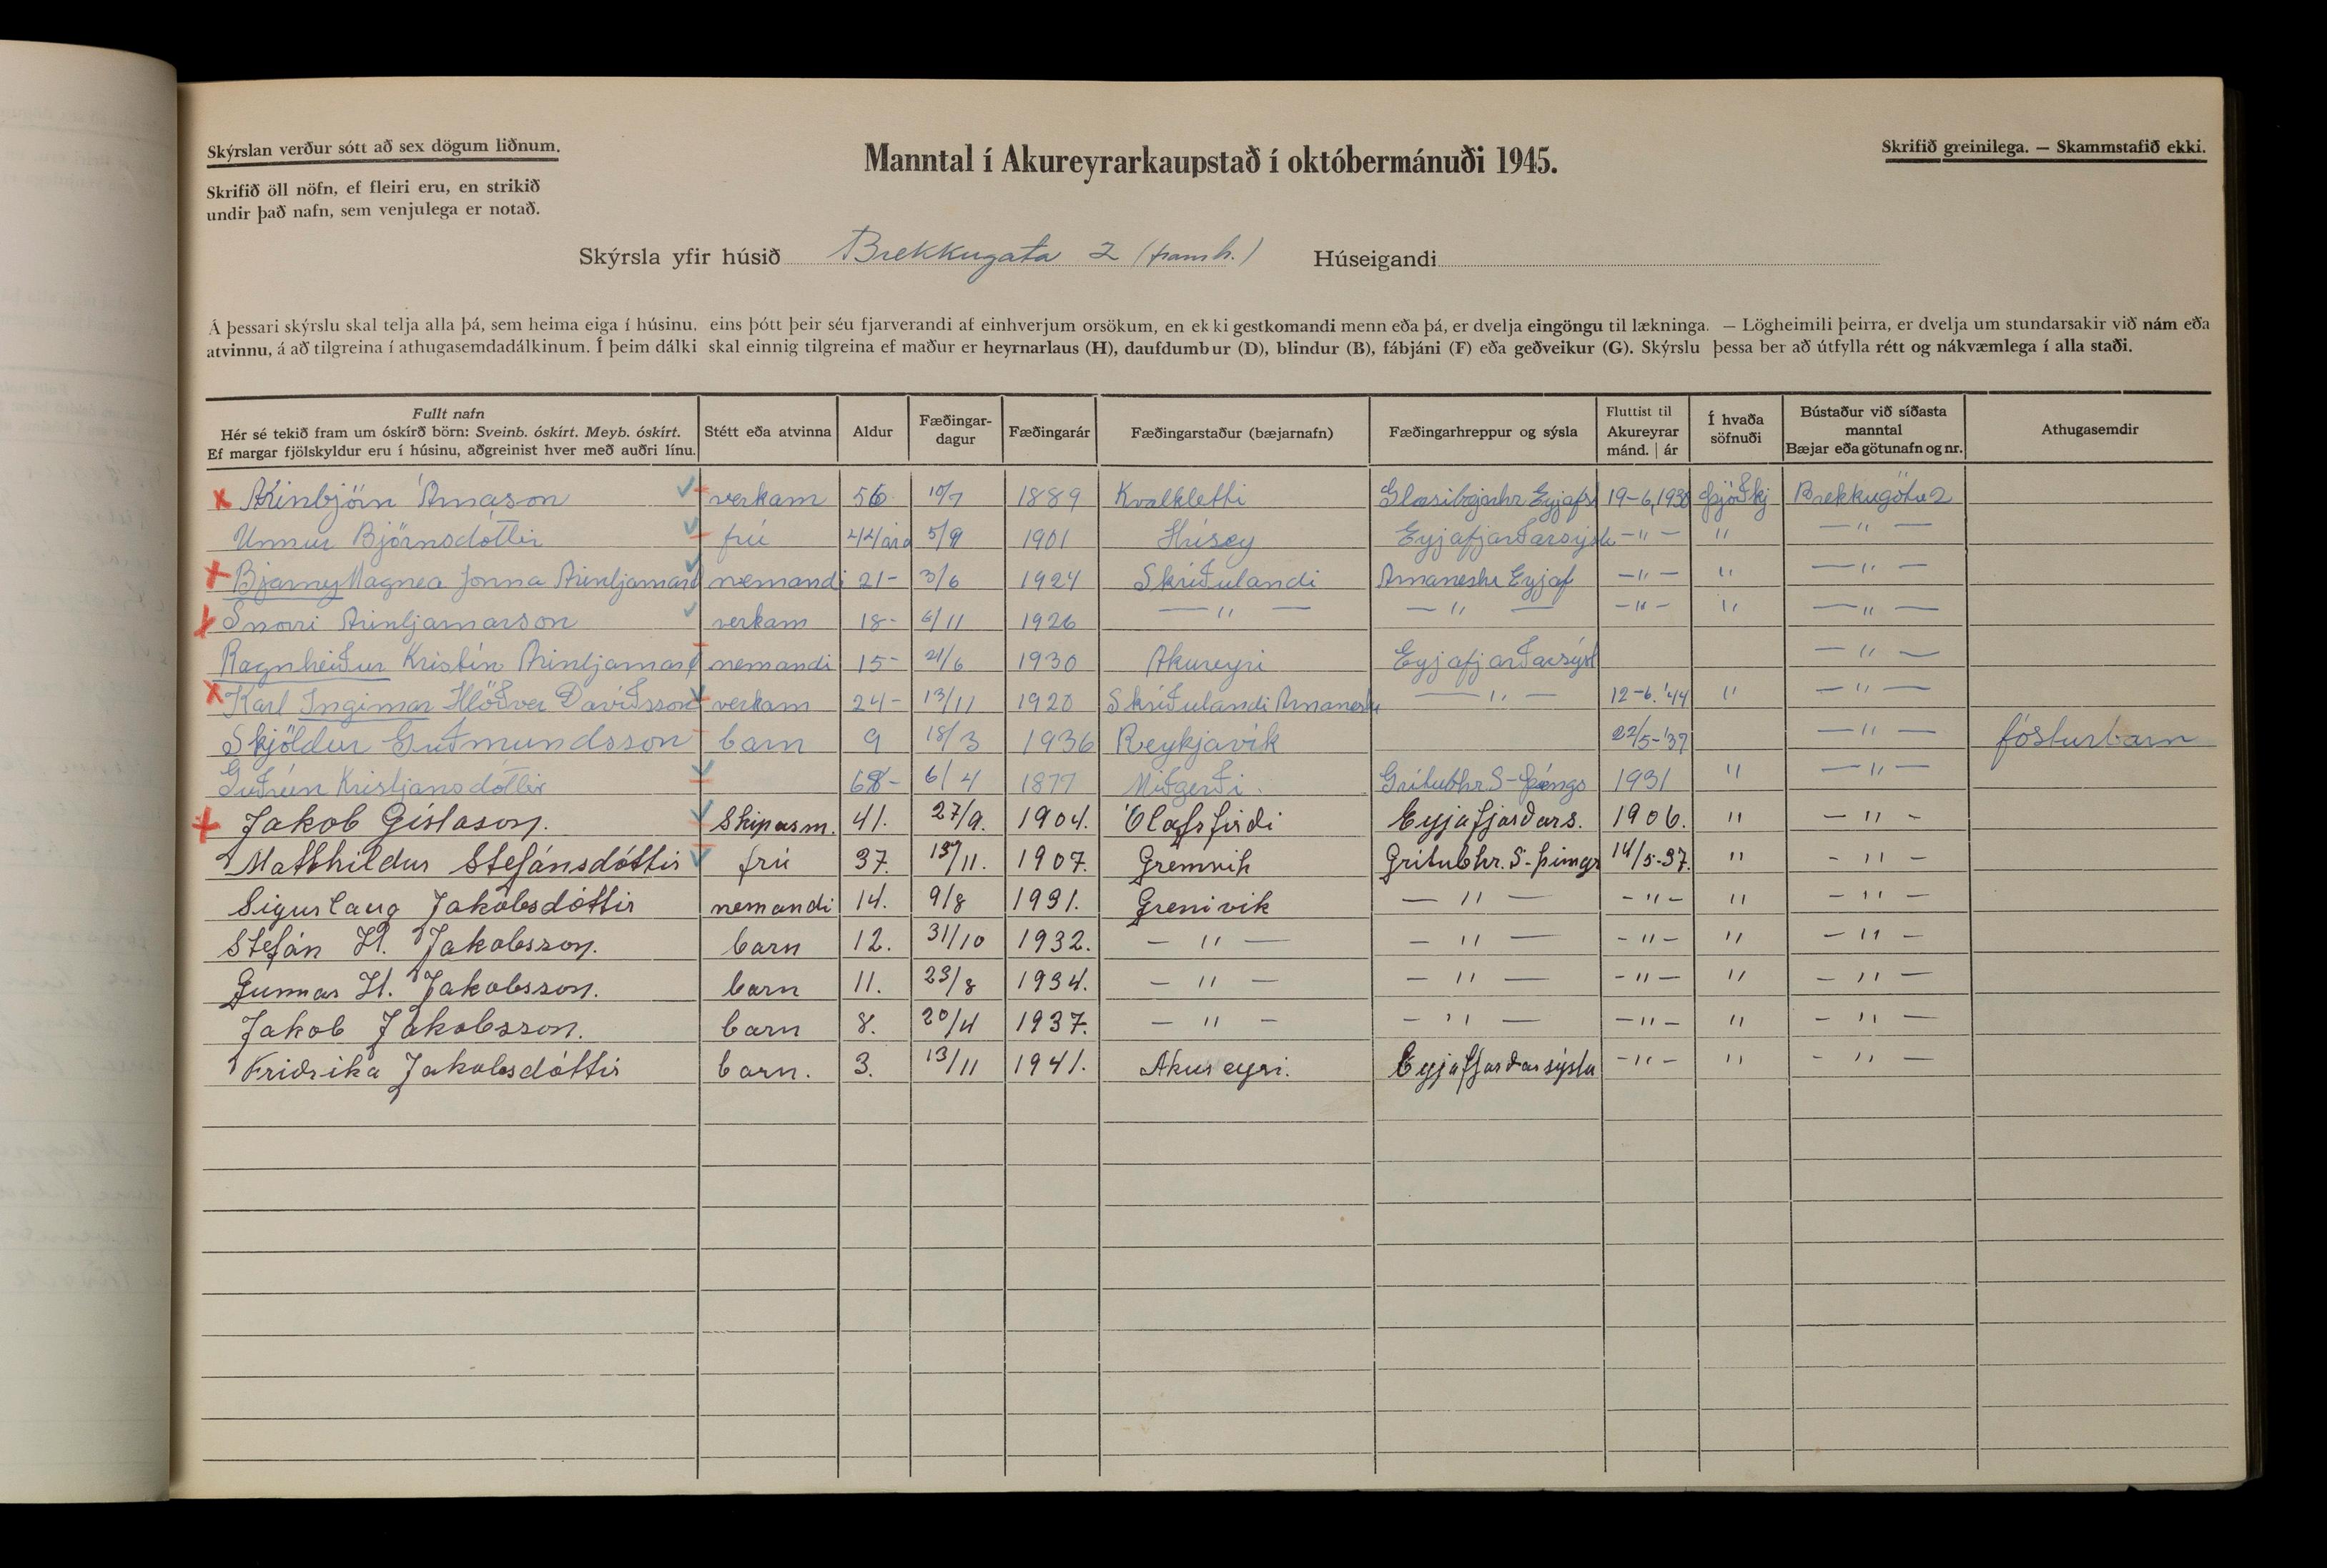 Skýrslan verður sótt að sex dögum liðnum.
Manntal í Akureyrarkaupstað í októbermánuði 1945.
Skrifið greinilega. — Skammstafið ekki.
Skrifið öll nöfn, ef fleiri eru, en strikið
undir það nafn, sem venjulega er notað.
Skýrsla yfir húsið Brekkugata 2 (framh.) Húseigandi
Á þessari skýrslu skal telja alla þá, sem heima eiga í húsinu, eins þótt þeir séu fjarverandi af einhverjum orsökum, en ekki gestkomandi menn eða þá, er dvelja eingöngu til lækninga. — Lögheimili þeirra, er dvelja um stundarsakir við nám eða
atvinnu, á að tilgreina í athugasemdadálkinum. Í þeim dálki skal einnig tilgreina ef maður er heyrnarlaus (H), daufdumbur (D), blindur (B), fábjáni (F) eða geðveikur (G). Skýrslu þessa ber að útfylla rétt og nákvæmlega í alla staði.
Fullt nafn
Hér sé tekið fram um óskírð börn: Sveinb. óskírt. Meyb. óskírt.
Ef margar fjölskyldur eru í húsinu, aðgreinist hver með auðri línu.
Stétt eða atvinna
Aldur
Fæðingar-
dagur
Fæðingarár
Fæðingarstaður (bæjarnafn)
Fæðingarhreppur og sýsla
Fluttist til
Akureyrar
mánd. | ár
Í hvaða
söfnuði
Bústaður við síðasta
manntal
Bæjar eða götunafn og nr.
Athugasemdir
Arinbjörn Árnason verkam 56 1889 Kvalkletti Glæsibæjarhr Eyjafs 19-6,1930 þjóðkj Brekkugötu 2
Unnur Björnsdóttir frú 44 ára 5/9 1901 Hrísey Eyjafjarðarsýslu —"— " —"—
Bjarney Magnea Jonna Arinbjarnard nemandi 21- 3/6 1924 Skriðulandi Arnaneshr Eyjaf —"— " —"—
Snorri Arinbjarnarson verkam 18- 6/11 1926 —"— —"— —"— " —"—
Ragnheiður Kristín Arinbjarnard nemandi 15- 21/6 1930 Akureyri Eyjafjarðarsýsl —"—
Karl Ingimar Hlöðver Davíðsson verkam 24- 13/11 1920 Skriðulandi Arnaneshr —"— 12-6.'44 " —"—
Skjöldur Guðmundsson barn 9 18/3 1936 Reykjavík 22/5-'37 —"— fósturbarn
Guðrún Kristjansdóttir 68- 6/4 1877 Miðgerði. Grítubhr. S-þings 1931 " —"—
Jakob Gíslason. Skipasm. 41. 27/9. 1904. Ólafsfirdi Eyjafjarðars. 1906. " —"—
Matthildur Stefánsdóttir frú 37. 1907. Grenivik Grítubhr. S-þingr 14/5-37. " —"—
Sigurlaug Jakobsdóttir nemandi 14. 9/8 1931. Grenivik —"— —"— " —"—
Stefán H. Jakobsson. barn 12. 31/10 1932. —"— —"— —"— " —"—
Gunnar H. Jakobsson. barn 11. 23/8 1934. —"— —"— —"— " —"—
Jakob Jakobsson. barn 8. 20/4 1937. —"— —"— —"— " —"—
Friðrika Jakobsdóttir barn. 3. 13/11 1941. Akureyri. Eyjafjarðarsýslu —"— " —"—